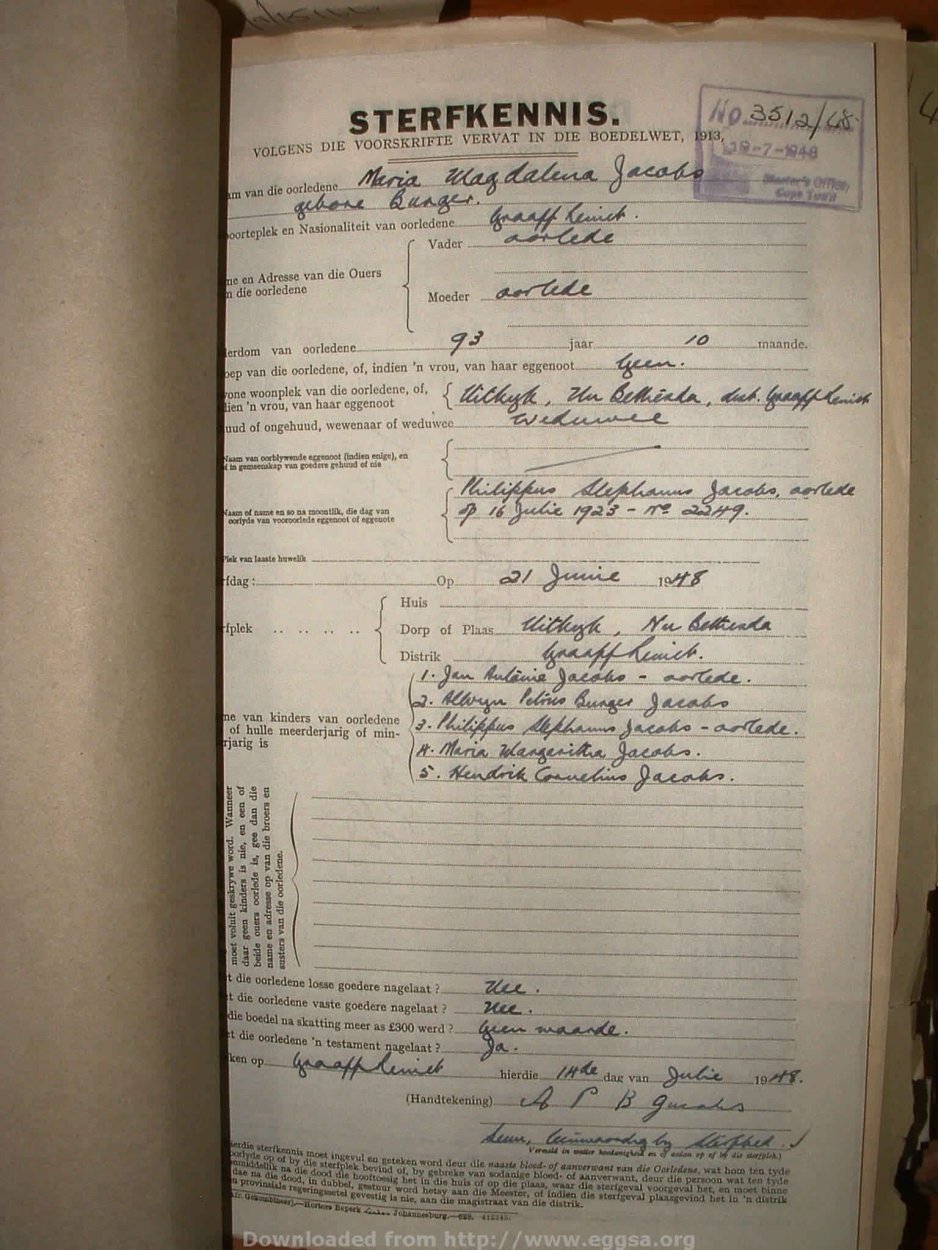 STERFKENNIS.
VOLGENS DIE VOORSKRIFTE VERVAT IN DIE BOEDELWET, 1913,
No. 3512/48
19-7-1948
Master's Office,
Cape Town
am van die oorledene Maria Magdalena Jacobs
gebore Burger.
oorteplek en Nasionaliteit van oorledene Graaff Reinet.
Vader oorlede
ne en Adresse van die Ouers
n die oorledene
Moeder oorlede
lerdom van oorledene 93 jaar 10 maande.
oep van die oorledene, of, indien 'n vrou, van haar eggenoot Geen.
one woonplek van die oorledene, of,
lien 'n vrou, van haar eggenoot
Uitkyk, Nu Bethesda, dist. Graaff Reinet
uud of ongehuud, wewenaar of weduwee Weduwee
Naam van oorblywende eggenoot (indien enige), en
of in gemeenskap van goedere gehuud of nie
Naam of name en so na moontlik, die dag van
oorlyde van vooroorlede eggenoot of eggenote
Philippus Stephanus Jacobs, oorlede
op 16 Julie 1923 - No 2249.
Plek van laaste huwelik
rfdag: Op 21 Junie 1948
Huis
rfplek Dorp of Plaas Uitkyk, Nu Bethesda
Distrik Graaff Reinet.
1. Jan Antonie Jacobs - oorlede.
2. Allwyn Petrus Burger Jacobs
me van kinders van oorledene
of hulle meerderjarig of min-
rjarig is
3. Philippus Stephanus Jacobs - oorlede.
4. Maria Margaritha Jacobs.
5. Hendrik Cornelius Jacobs.
moet voluit geskrywe word. Wanneer
daar geen kinders is nie, en een of
beide ouers oorlede is, gee dan die
name en adresse op van die broers en
susters van die oorledene.
t die oorledene losse goedere nagelaat? Nee.
t die oorledene vaste goedere nagelaat? Nee.
die boedel na skatting meer as £300 werd? Geen waarde.
t die oorledene 'n testament nagelaat? Ja.
ken op Graaff Reinet hierdie 14de dag van Julie 1948.
(Handtekening) A P B Jacobs
Seun, teenwoordig by sterfbed.
Vermeld in watter hoedanigheid en of anders op of by die sterfplek.)
ierdie sterfkennis moet ingevul en geteken word deur die naaste bloed- of aanverwant van die Oorledene, wat hom ten tyde
oorlyde op of by die sterfplek bevind of, by gebreke van sodanige bloed- of aanverwant, deur die persoon wat ten tyde
nmiddellik na die dood die hooftoesig het in die huis of op die plaas, waar die sterfgeval voorgeval het, en moet binne
dae na die dood, in dubbel, gestuur word hetsy aan die Meester, of indien die sterfgeval plaasgevind het in 'n distrik
n provinsiale regeringsetel gevestig is nie, aan die magistraat van die distrik.
Johannesburg.—628. 412345.
Downloaded from http://www.eggsa.org